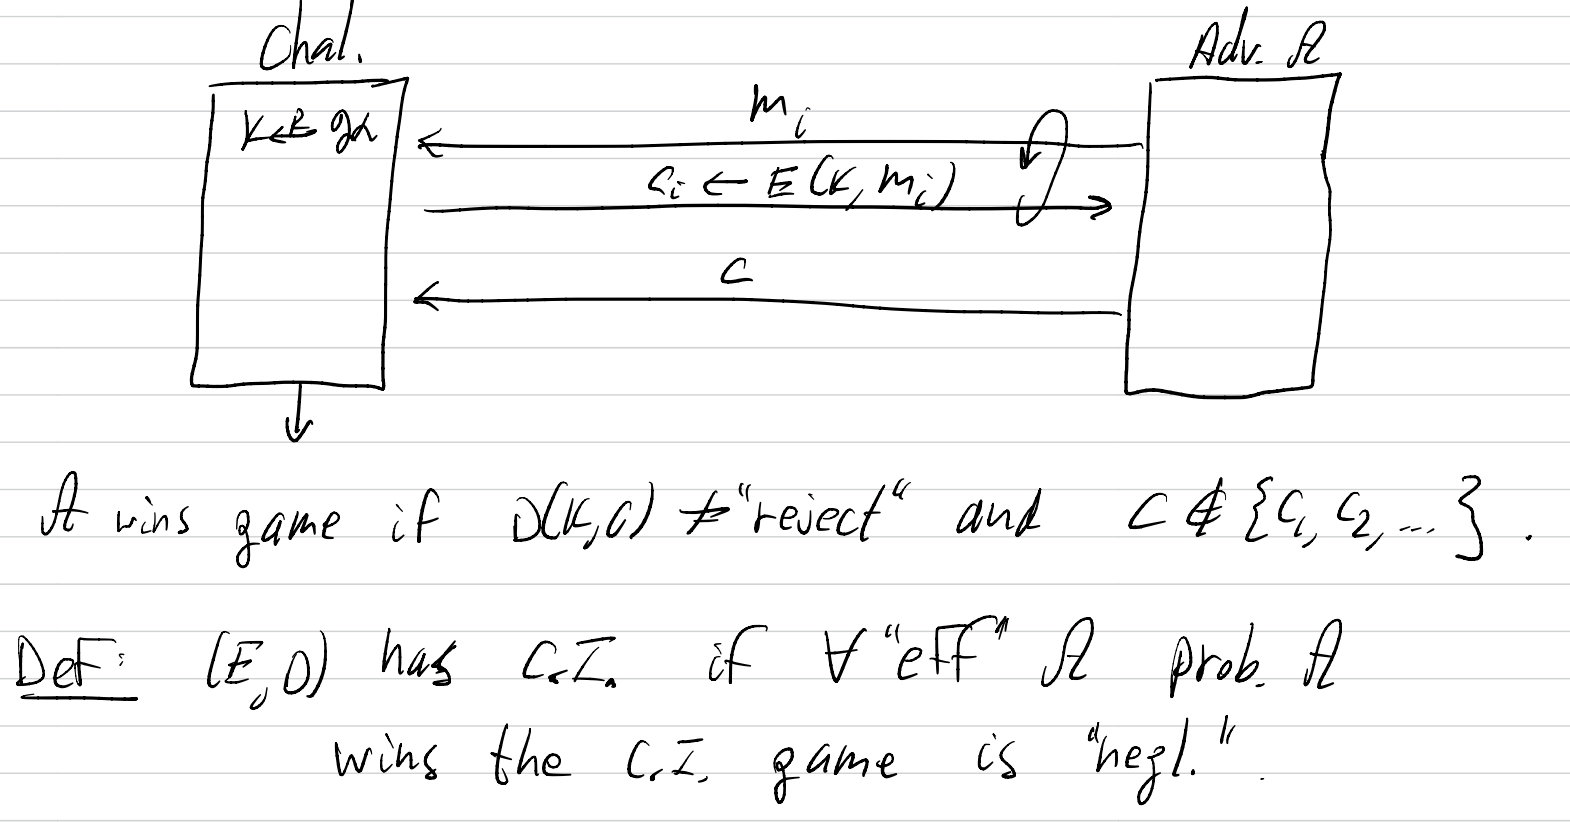 Chal.
Adv. A
K ←R K
m_i
c_i ← E(K, m_i)
C
A wins game if D(K,C) ≠ "reject" and C ∉ {C_1, C_2, ...}.
Def: (E,D) has C.I. if ∀ "eff" A prob. A
wins the C.I. game is "negl.".